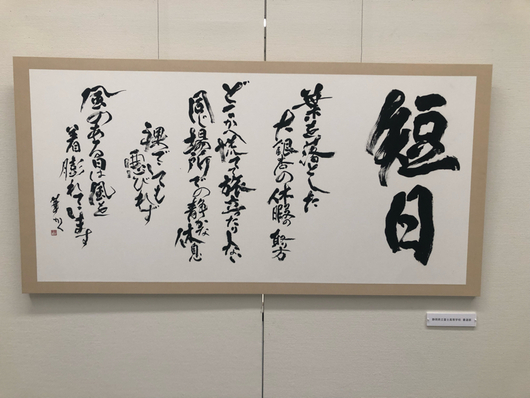 短日
葉を落とした
大銀杏の休暇の取方
どこかへ慌てて旅立たない
同じ場所での静かな
休息
裸でいても
悪びれず
風のある日は風を
着膨れています